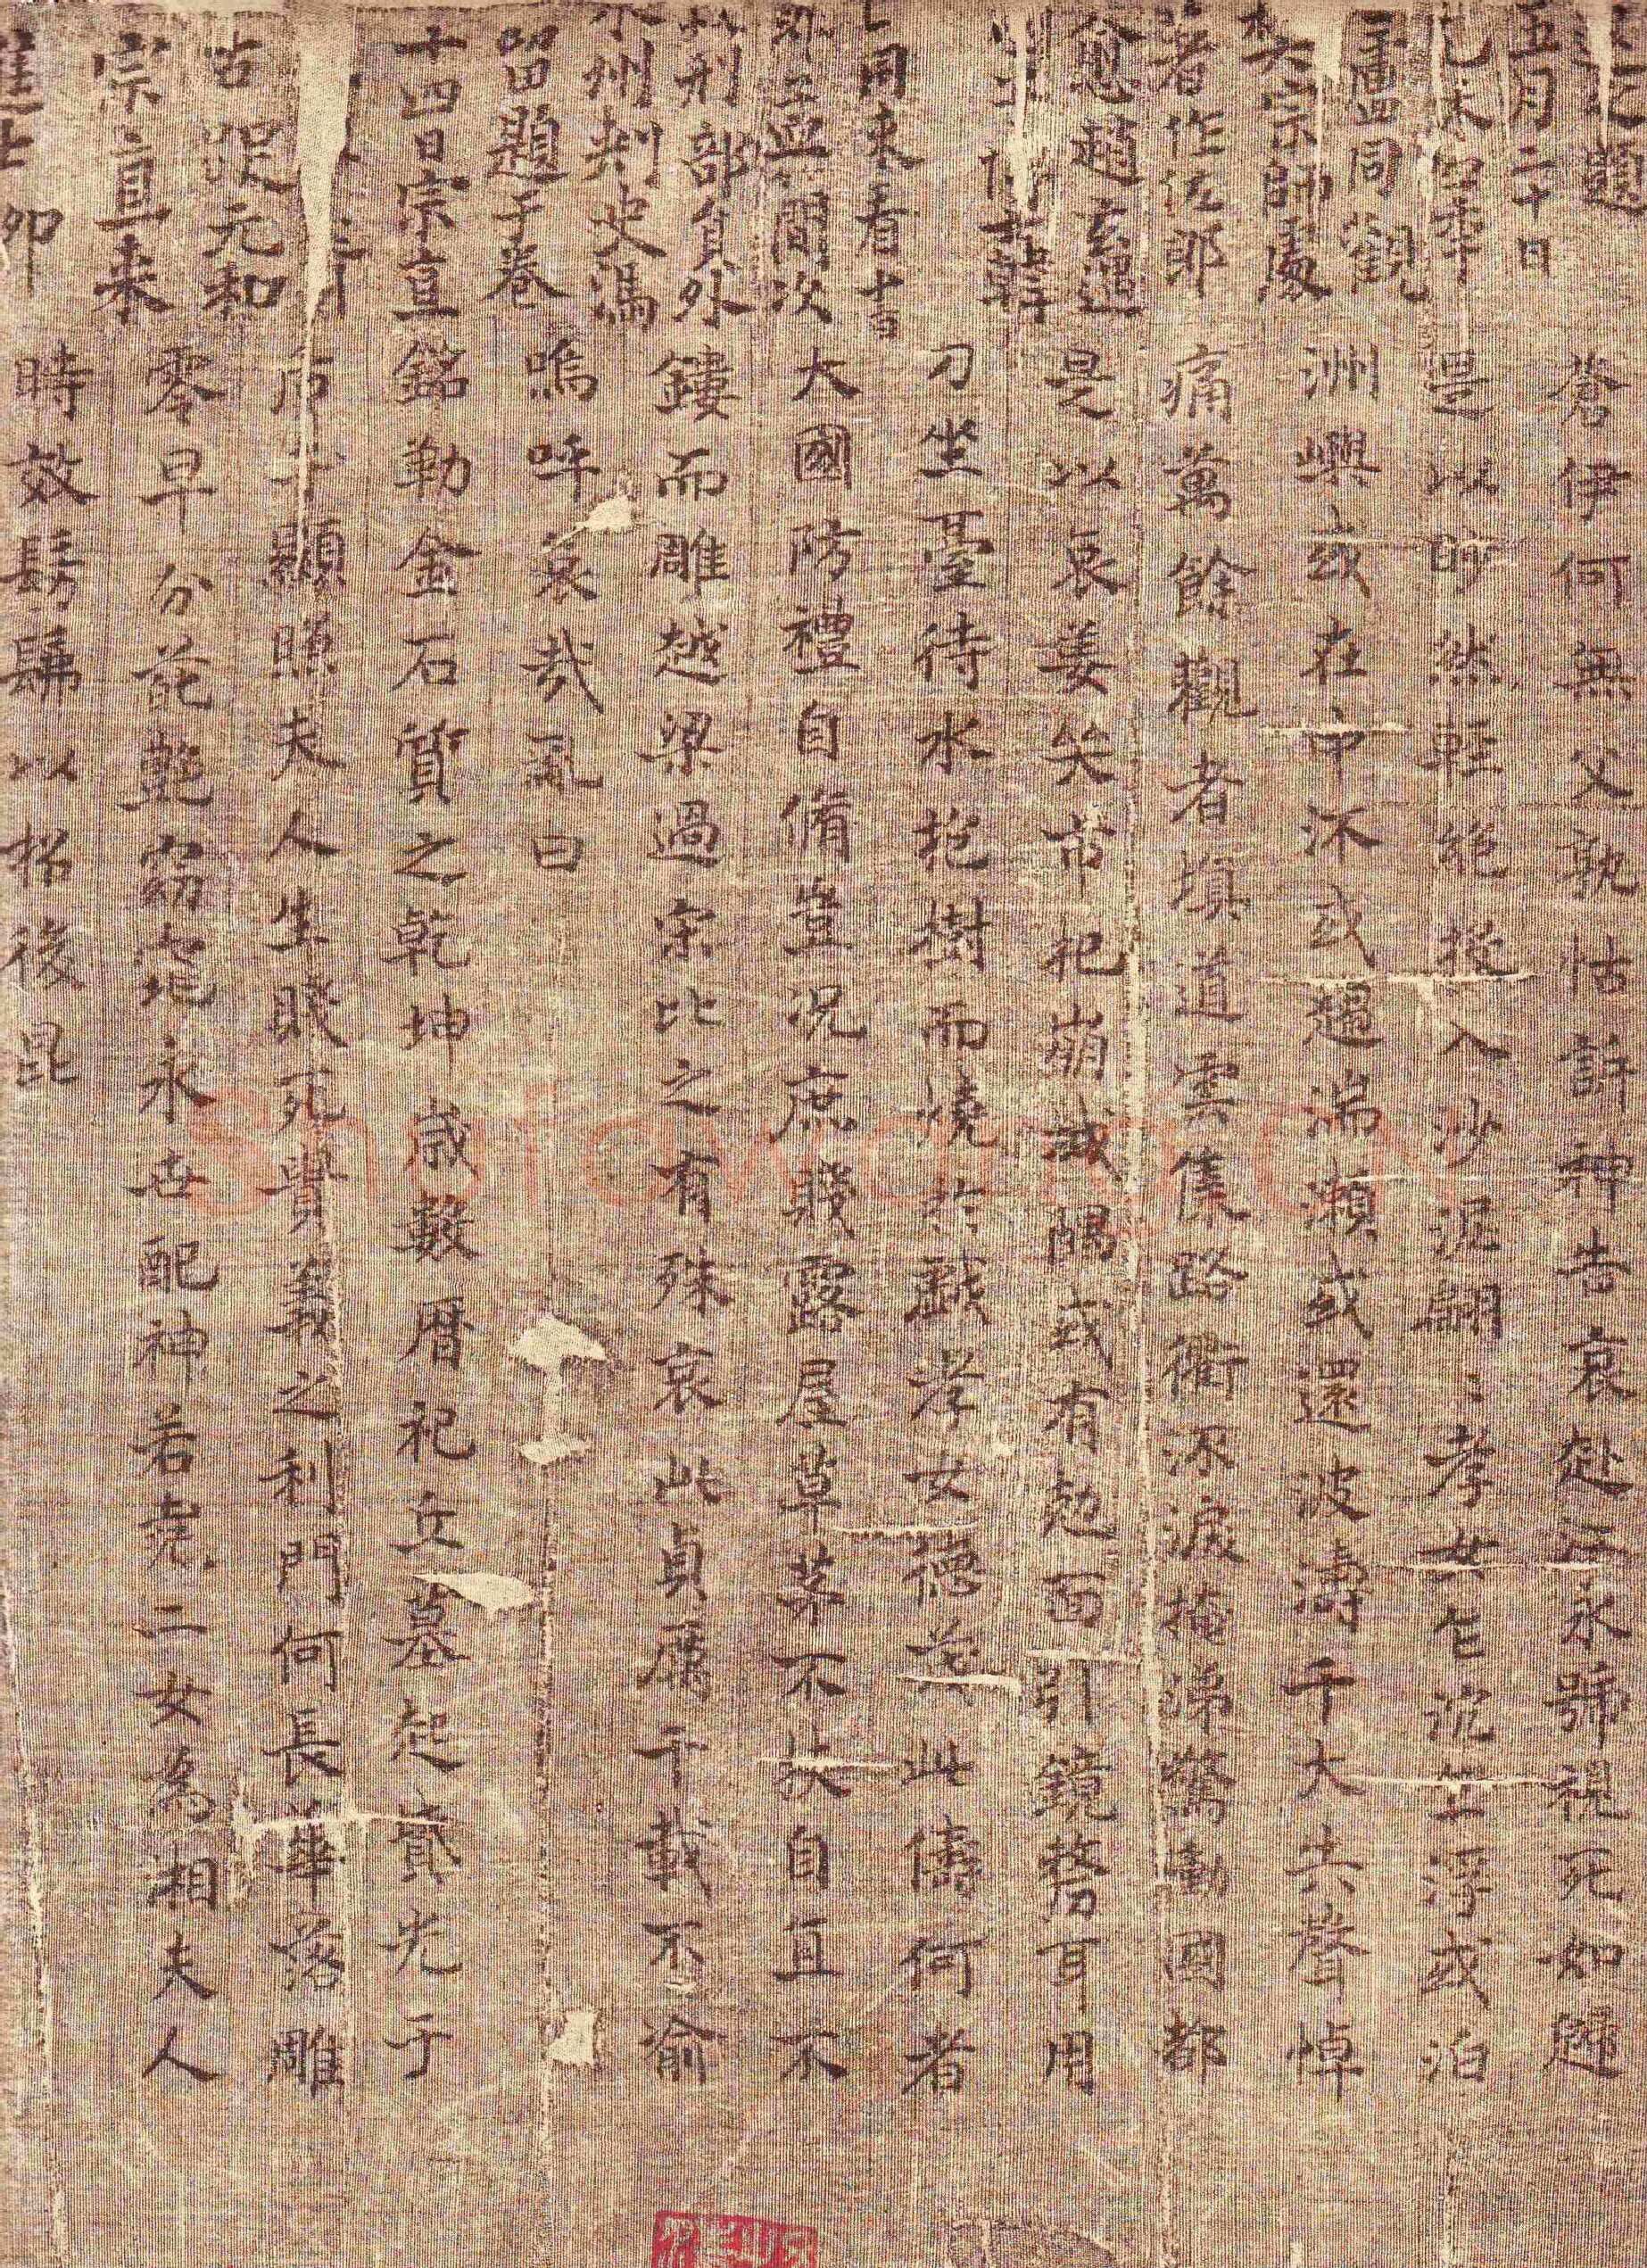 題
五月二十日
同觀
宗師慶
著作佐郎
趙玄遇
同來看
簡次
刑部員外
永州刺史馮
留題于卷
十四日宗直
元和
宗直來
蒼伊何無父孰怙訴神告哀赴江永號視死如歸
是以眇然輕絕投入沙泥翩〻孝女乍沉乍浮或泊
洲嶼或在中流或趨湍瀨或還波濤千夫失聲悼
痛萬餘觀者填道雲集路衢流淚掩涕驚慟國都
是以哀姜哭市杞崩城隅或有剋面引鏡剺耳用
刀坐臺待水抱樹而燒於戲孝女德茂此儔何者
大國防禮自脩豈況庶賤露屋草茅不扶自直不
鏤而雕越梁過宋比之有殊哀此貞厲千載不渝
嗚呼哀哉亂曰
銘勒金石質之乾坤歲數曆祀丘墓起墳光于
后土顯照夫人生賤死貴義之利門何長華落雕
零早分葩豔窈窕永世配神若堯二女為湘夫人
時效髣髴以招後昆